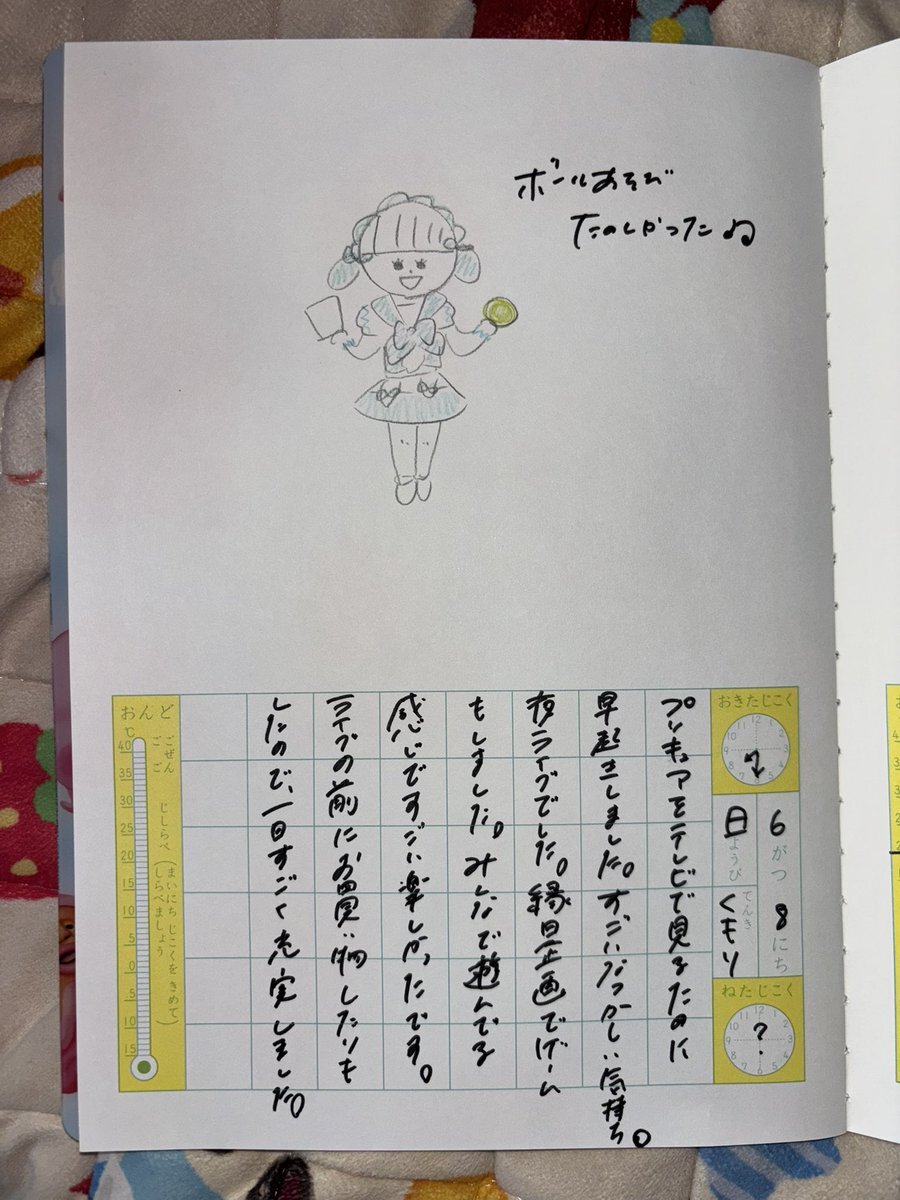 ボールあそび
たのしかった♫
おきたじこく
12 1 2 3 4 5 6 7 8 9 10 11
6がつ8にち
日ようび
てんき
くもり
ねたじこく
12 1 2 3 4 5 6 7 8 9 10 11
?
プリキュアをテレビで見るために
早起きしました。すごいなつかしい気持ち。
夜ライブでした。縁日企画でゲーム
もしました。みんなで遊んでる
感じですごい楽しかったです。
ライブの前にお買い物したりも
したので、一日すごく充実しました。
おんど
℃
ごぜん
ごご
じしらべ
(まいにち じこくを きめて
しらべましょう)
40
35
30
25
20
15
10
5
0
5
10
15